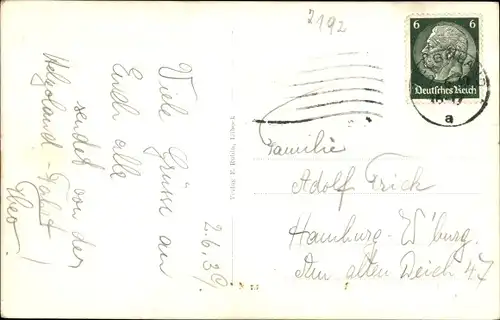 2192
6 6
Deutsches Reich
a
Viele Grüsse an
Euch alle
sendet von der
Helgoland-Fahrt
Theo
2.6.39
Familie
Adolf Frick
Hamburg-W'burg.
Am alten Deich 47